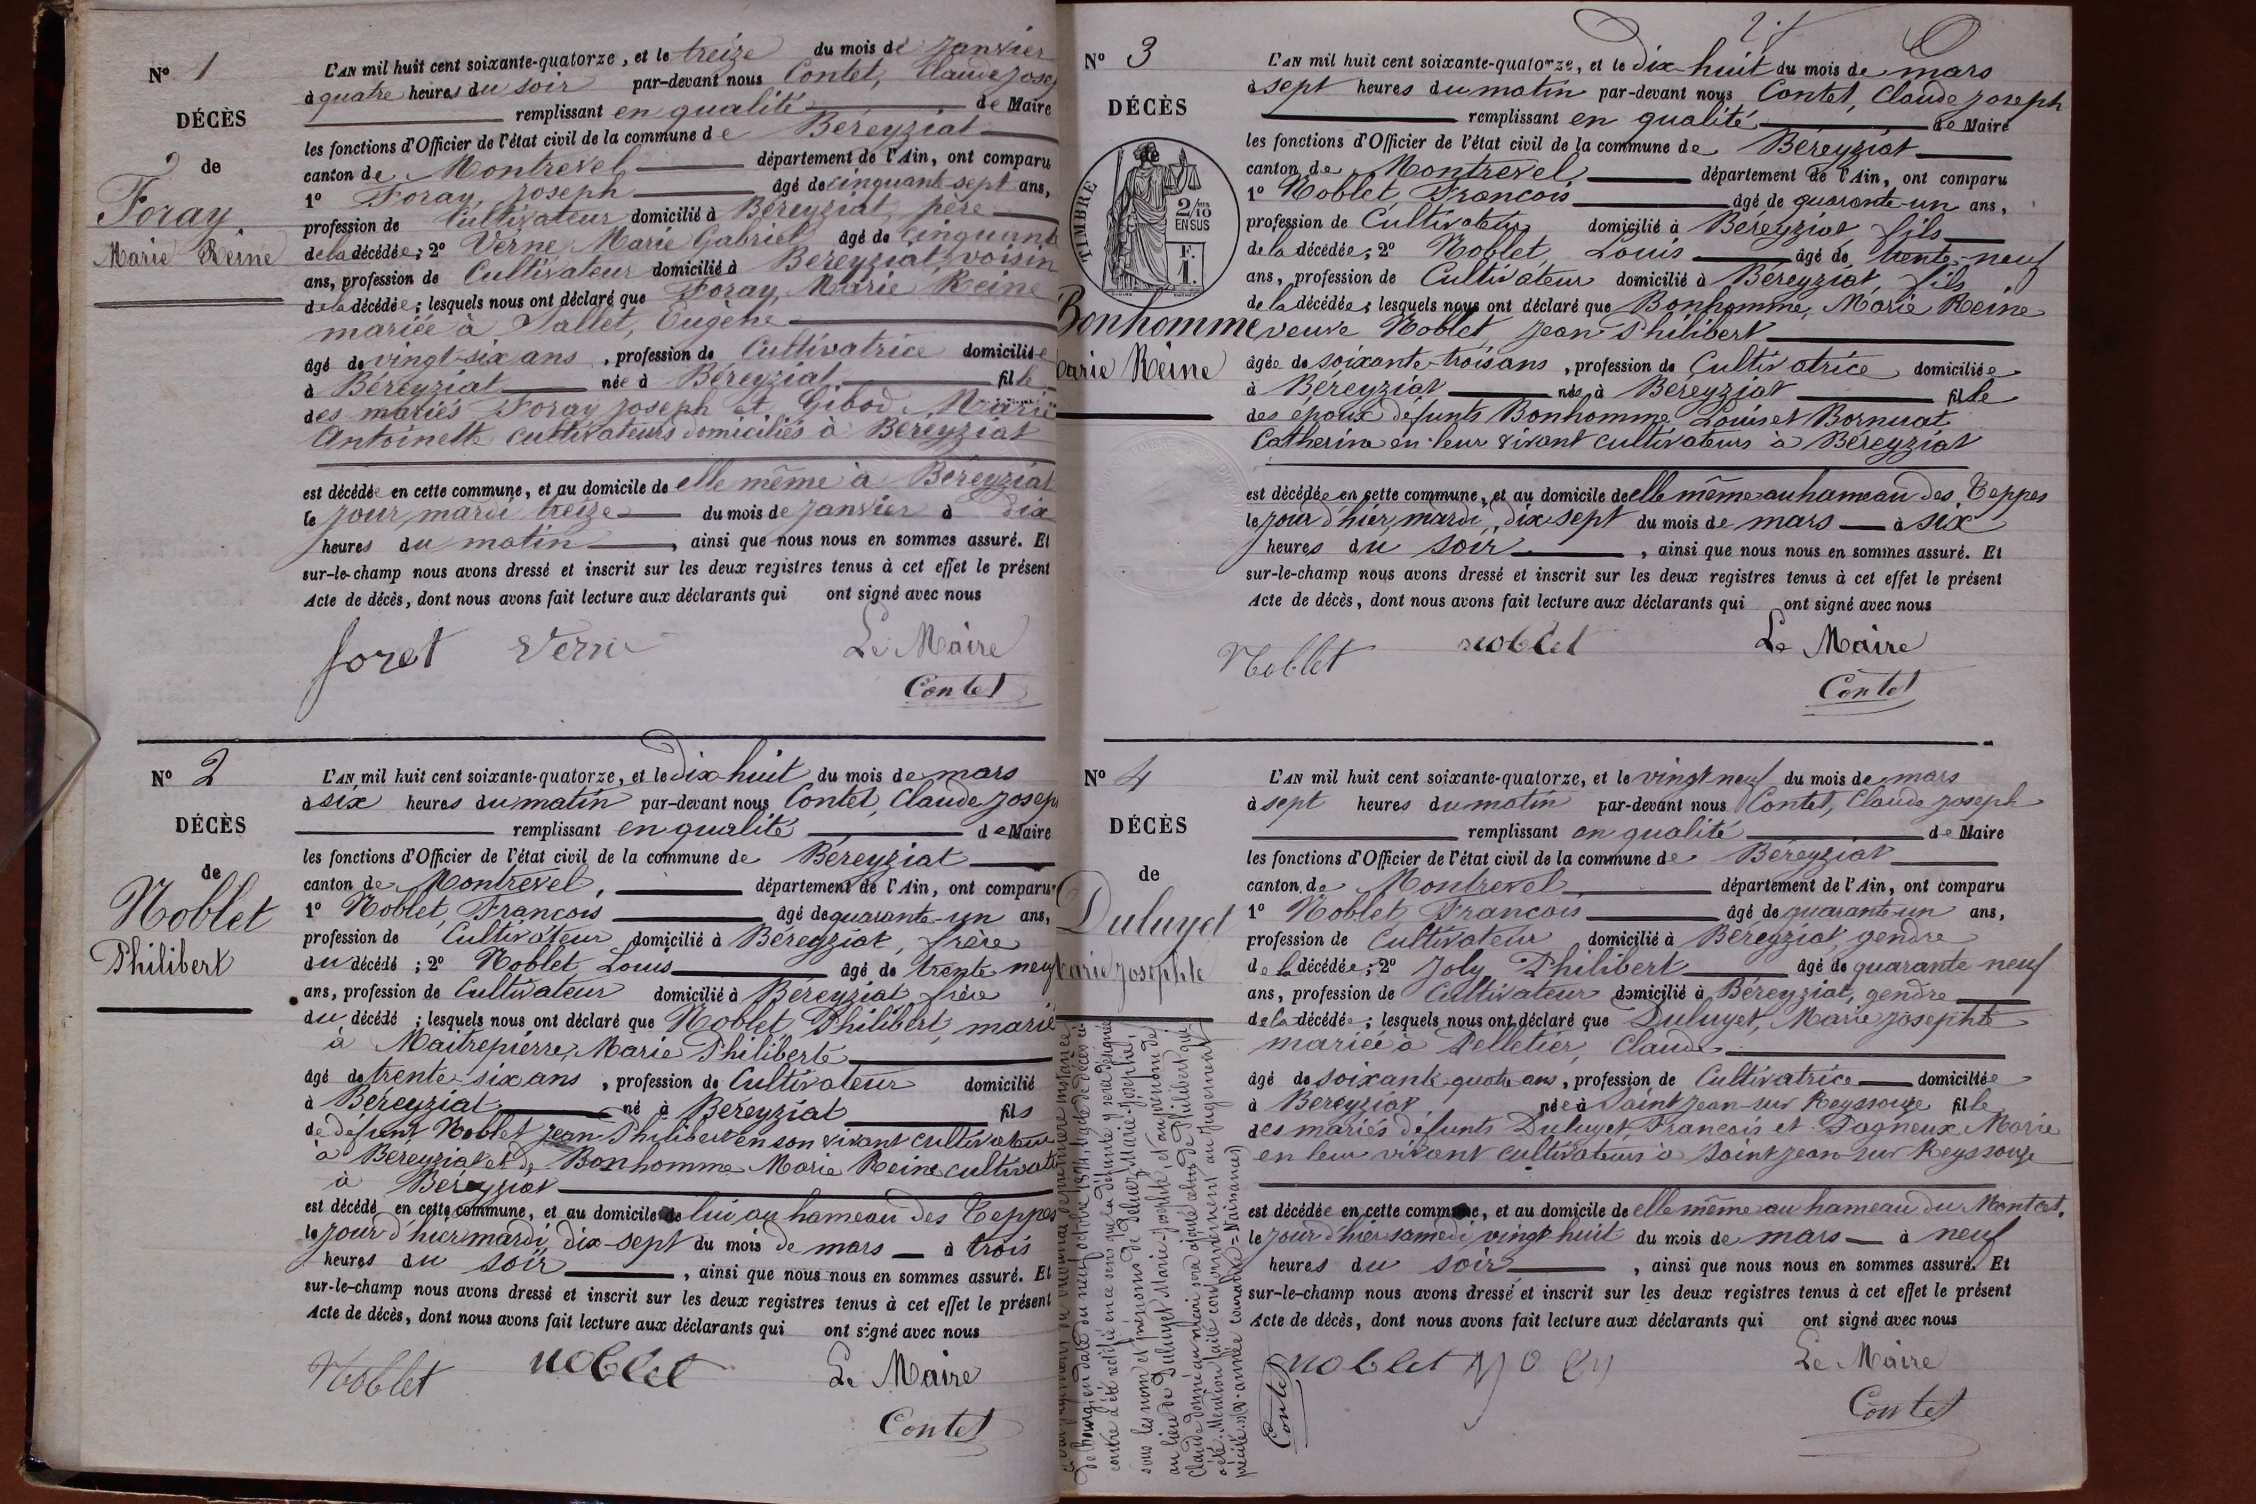 N° 1
DÉCÈS
de
Foray
Marie Reine
L'AN mil huit cent soixante-quatorze, et le treize du mois de Janvier
à quatre heures du soir par-devant nous Contet, Claude Josep
remplissant en qualité de Maire
les fonctions d'Officier de l'état civil de la commune de Béréyziat
canton de Montrevel département de l'Ain, ont comparu
1° Foray, Joseph âgé de cinquante-sept ans,
profession de Cultivateur domicilié à Béréyziat, père
de la décédée; 2° Verne, Marie Gabriel âgé de cinquante
ans, profession de Cultivateur domicilié à Béréyziat, voisin
de la décédée; lesquels nous ont déclaré que Foray, Marie Reine
mariée à Pallet, Eugène
âgé de vingt-six ans, profession de Cultivatrice domiciliée
à Béréyziat née à Béréyziat fille
des mariés Foray Joseph et Gibod Marie
Antoinette cultivateurs domiciliés à Béréyziat
est décédée en cette commune, et au domicile de elle même à Béréyziat
le jour, mardi treize du mois de Janvier à dix
heures du matin, ainsi que nous nous en sommes assuré. Et
sur-le-champ nous avons dressé et inscrit sur les deux registres tenus à cet effet le présent
Acte de décès, dont nous avons fait lecture aux déclarants qui ont signé avec nous
foret Verne Le Maire
Contet
N° 2
DÉCÈS
de
Noblet
Philibert
L'AN mil huit cent soixante-quatorze, et le dix-huit du mois de mars
à six heures du matin par-devant nous Contet, Claude Joseph
remplissant en qualité de Maire
les fonctions d'Officier de l'état civil de la commune de Béréyziat
canton de Montrevel, département de l'Ain, ont comparu
1° Noblet, François âgé de quarante-un ans,
profession de Cultivateur domicilié à Béréyziat, frère
du décédé; 2° Noblet, Louis âgé de trente neuf
ans, profession de Cultivateur domicilié à Béréyziat frère
du décédé; lesquels nous ont déclaré que Noblet, Philibert, marié
à Maitrepierre, Marie Philiberte
âgé de trente-six ans, profession de Cultivateur domicilié
à Béréyziat né à Béréyziat fils
de défunt Noblet Jean Philibert en son vivant cultivateur
à Béréyziat et de Bonhomme Marie Reine cultivat
à Béréyziat
est décédé en cette commune, et au domicile de lui au hameau des Teppes
le jour d'hier mardi, dix-sept du mois de mars à trois
heures du soir, ainsi que nous nous en sommes assuré. Et
sur-le-champ nous avons dressé et inscrit sur les deux registres tenus à cet effet le présent
Acte de décès, dont nous avons fait lecture aux déclarants qui ont signé avec nous
Noblet noblet Le Maire
Contet
N° 3
DÉCÈS
TIMBRE
2/10
EN SUS
F.
1.
Bonhomme
arie Reine
L'AN mil huit cent soixante-quatorze, et le dix-huit du mois de mars
à sept heures du matin par-devant nous Contet, Claude Joseph
remplissant en qualité de Maire
les fonctions d'Officier de l'état civil de la commune de Béréyziat
canton de Montrevel département de l'Ain, ont comparu
1° Noblet, François âgé de quarante-un ans,
profession de Cultivateur domicilié à Béréyziat, fils
de la décédée; 2° Noblet, Louis âgé de trente-neuf
ans, profession de Cultivateur domicilié à Béréyziat, fils
de la décédée; lesquels nous ont déclaré que Bonhomme, Marie Reine
veuve Noblet, Jean Philibert
âgée de soixante-trois ans, profession de Cultivatrice domiciliée
à Béréyziat née à Béréyziat fille
des époux défunts Bonhomme Louis et Bornuat
Catherine en leur vivant cultivateurs à Béréyziat
est décédée en cette commune, et au domicile de elle même au hameau des Teppes
le jour d'hier, mardi, dix-sept du mois de mars à six
heures du soir, ainsi que nous nous en sommes assuré. Et
sur-le-champ nous avons dressé et inscrit sur les deux registres tenus à cet effet le présent
Acte de décès, dont nous avons fait lecture aux déclarants qui ont signé avec nous
Noblet noblet Le Maire
Contet
N° 4
DÉCÈS
de
Duluyet
arie Josephte
L'AN mil huit cent soixante-quatorze, et le vingt neuf du mois de mars
à sept heures du matin par-devant nous Contet, Claude Joseph
remplissant en qualité de Maire
les fonctions d'Officier de l'état civil de la commune de Béréyziat
canton de Montrevel département de l'Ain, ont comparu
1° Noblet, François âgé de quarante-un ans,
profession de Cultivateur domicilié à Béréyziat, gendre
de la décédée; 2° Joly, Philibert âgé de quarante neuf
ans, profession de Cultivateur domicilié à Béréyziat, gendre
de la décédée; lesquels nous ont déclaré que Duluyet, Marie Josephte
mariée à Pelletier, Claude
âgé de soixante-quatre ans, profession de Cultivatrice domiciliée
à Béréyziat, née à Saint Jean-sur Reyssouze fille
des mariés défunts Duluyet, François et Pagneux Marie
en leur vivant cultivateurs à Saint Jean-sur Reyssouze
est décédée en cette commune, et au domicile de elle même au hameau du Montcet,
le jour d'hier samedi vingt huit du mois de mars à neuf
heures du soir, ainsi que nous nous en sommes assuré. Et
sur-le-champ nous avons dressé et inscrit sur les deux registres tenus à cet effet le présent
Acte de décès, dont nous avons fait lecture aux déclarants qui ont signé avec nous
noblet Joly Le Maire
Contet
de Bourg, en date du neuf octobre 1874, l'acte de décès ci-
contre a été rectifié en ce sens que la défunte y sera désignée
sous les nom et prénoms de Deluez Marie-Josephe,
au lieu de Duluyet Marie-Josephte, et au prénom de
Claude donné au mari sera ajouté celui de Philibert qui
a été. Mention faite conformément au Jugement
précité. (année courante = Naissances)
Contet